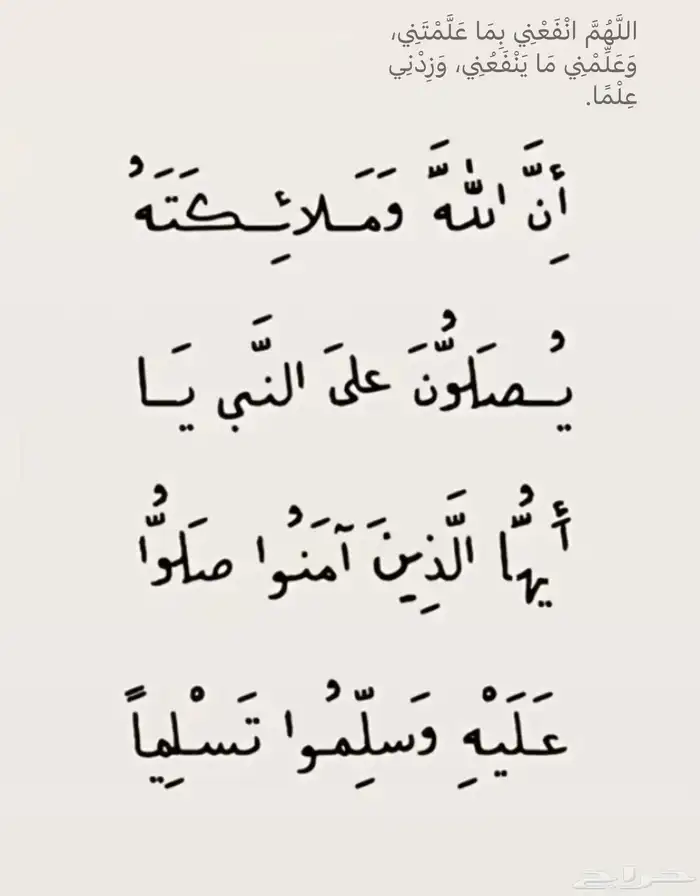 اللَّهُمَّ انْفَعْنِي بِمَا عَلَّمْتَنِي،
وَعَلِّمْنِي مَا يَنْفَعُنِي، وَزِدْنِي
عِلْمًا.
أِنَّ اللَّهَ وَمَلائِكَتَهُ
يُصَلَوُّنَ عَلىَ النَّبي يَا
أَيهُّا الَّذِينَ آمَنُوا صَلوُّا
عَلَيْهِ وَسَلِّمُوا تَسْلِيماً
حراج